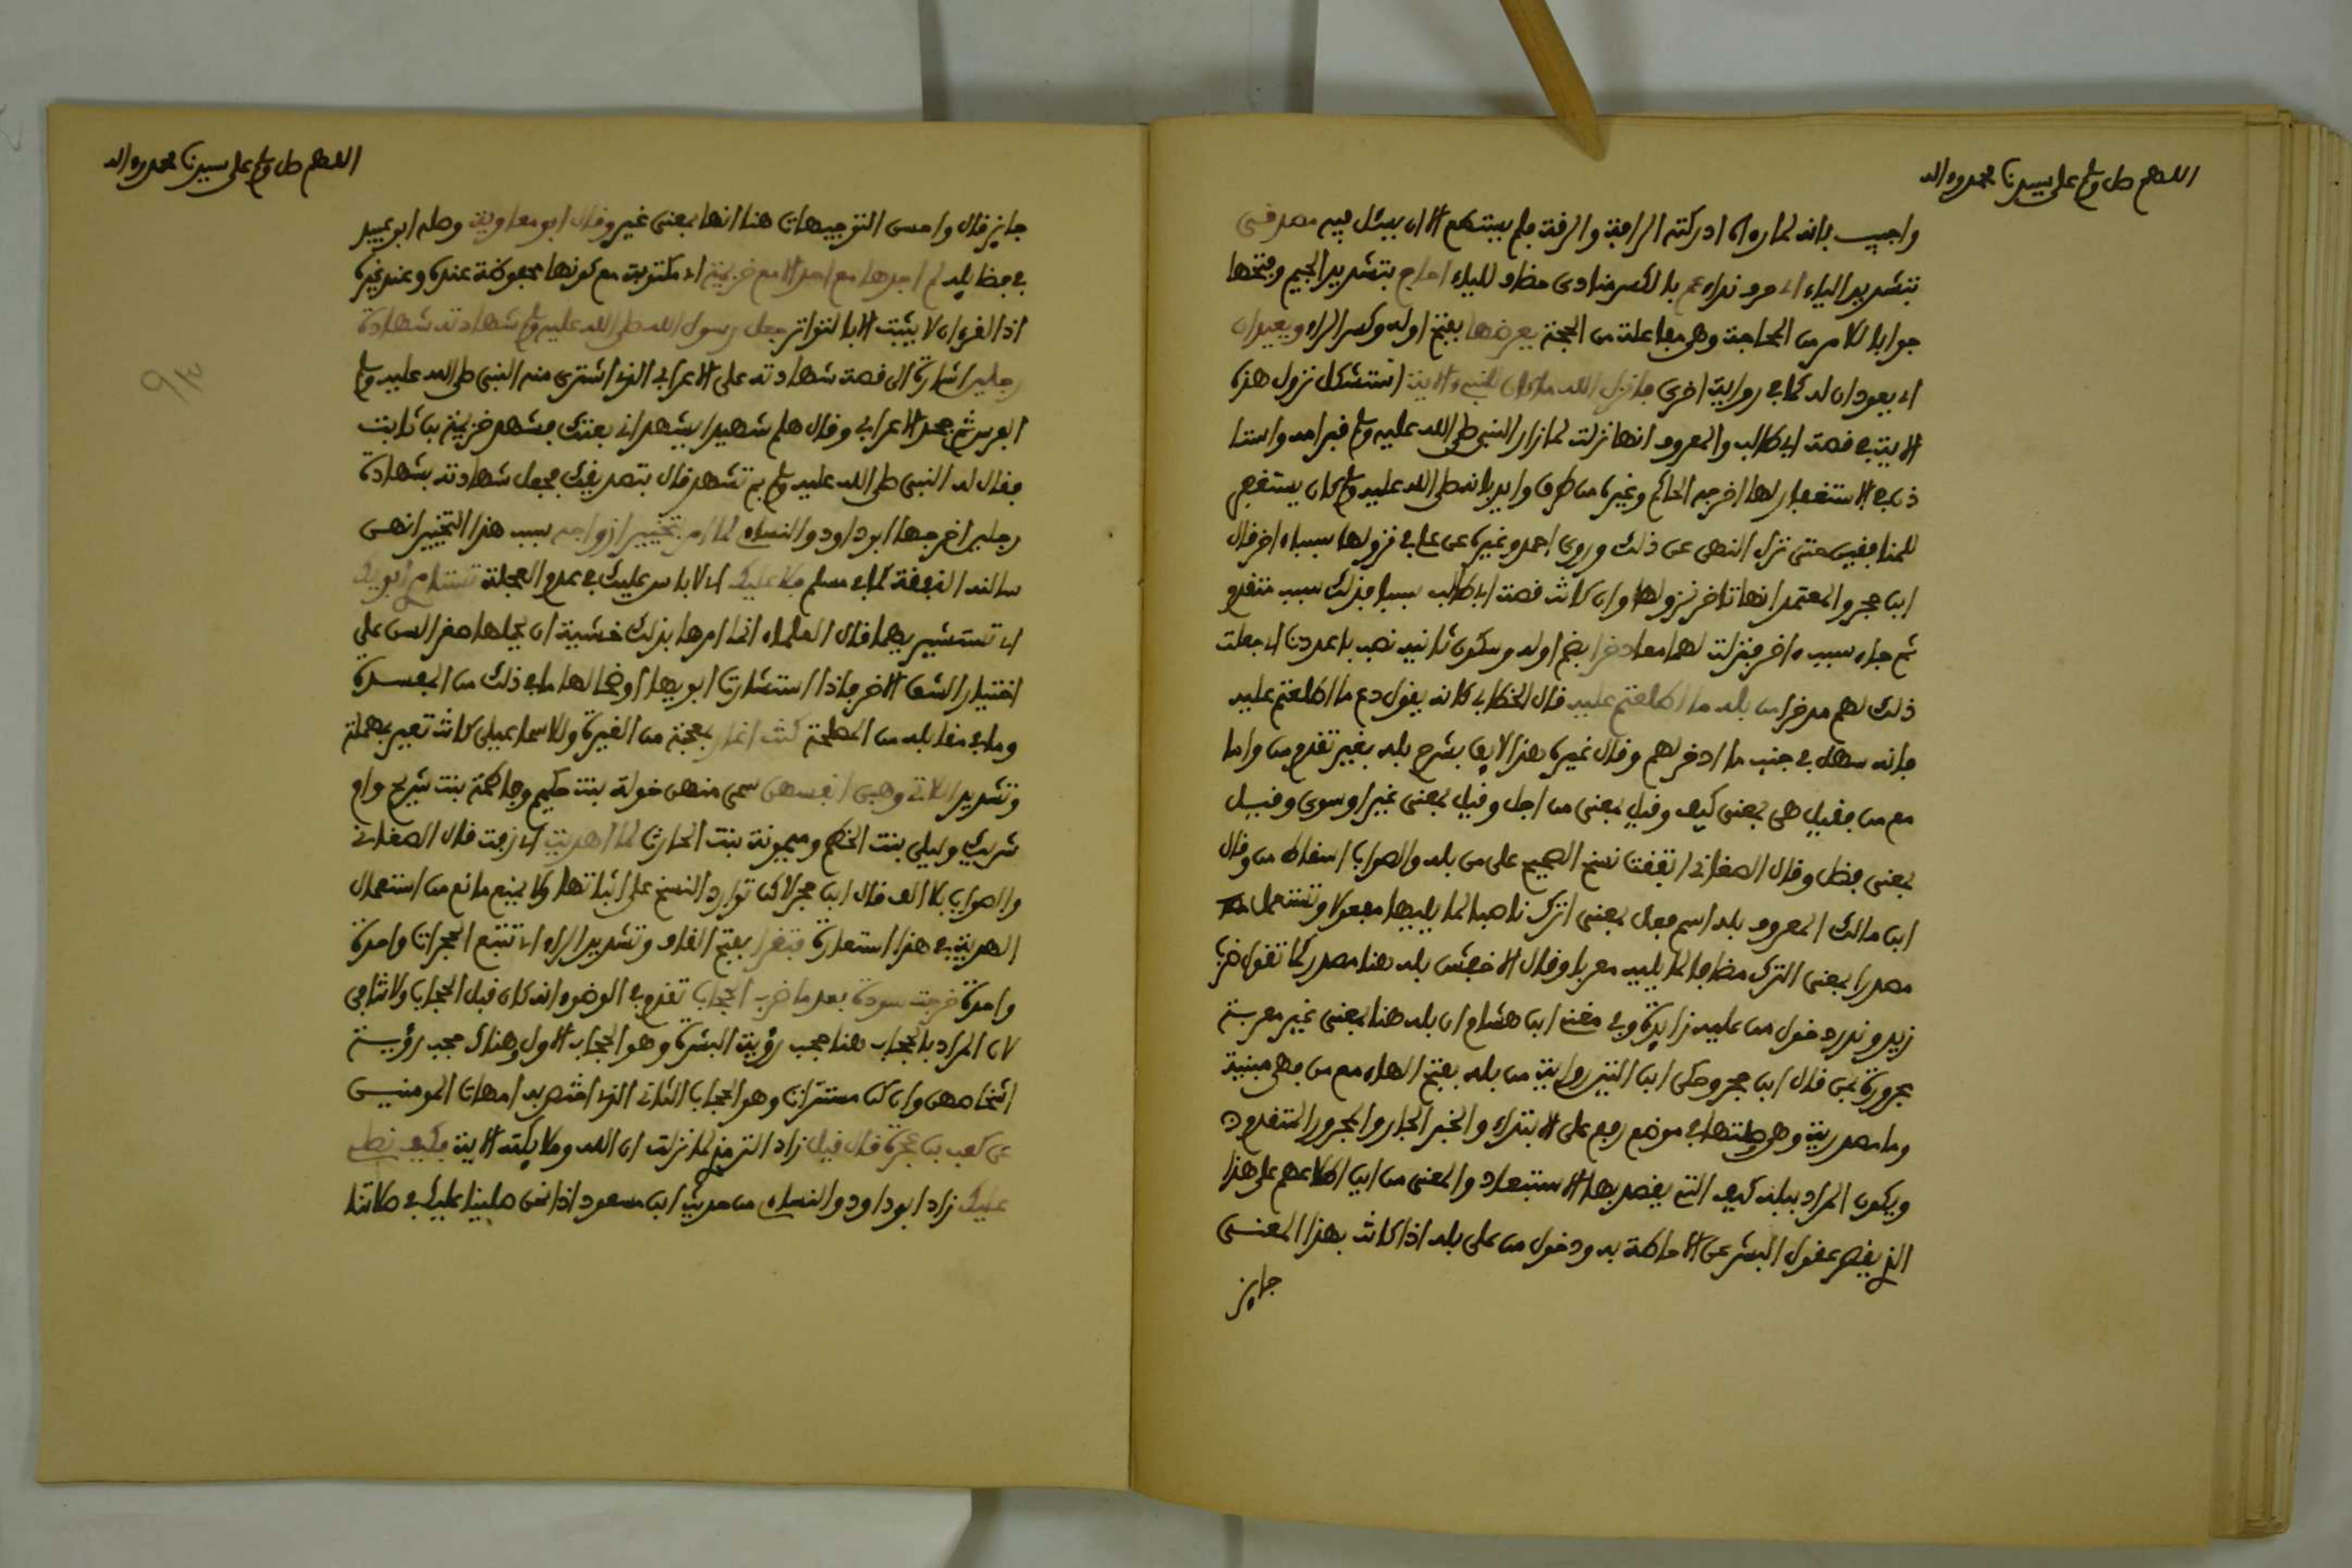 اللهم صل وسلم على سيدنا محمد وءاله
واجيب بانه لما رءاه ادركته الرافة والرقة فلم يستطع الا ان يسئل فيه صدقني
بتشديد الياء اي حرف نداء عم بالكسر منادى مضاف للياء احاج بتشديد الجيم وفتحها
جوابا للامر من المحاجة وهي مفاعلة من الحجة يعرضها بفتح اوله وكسر الراء ويعيدان
اي يعودان له كما في رواية اخرى فانزل الله ما كان للنبي الاية استشكل نزول هذه
الاية في قصة ابي طالب والمعروف انها نزلت لما زار النبي صلى الله عليه وسلم قبر امه واستا
ذن في الاستغفار لها اخرجه الحاكم وغيره من طرق وايد بانه صلى الله عليه وسلم كان يستغفر
للمنافقين حتى نزل النهي عن ذلك وروى احمد وغيره عن علي في نزولها سببا اخر قال
ابن حجر والمعتمد انها تاخر نزولها وان كانت قصة ابي طالب سببا فذلك سبب متقدم
ثم جاء سبب اخر فنزلت لهما معا ذخرا بضم اوله وسكون ثانيه نصب باعددت اي جعلت
ذلك لهم مدخرا من بله ما اطلعتم عليه قال الخطابي كانه يقول دع ما اطلعتم عليه
فانه سهل في جنب ما ادخر لهم وقال غيره هذا لايق بشرح بله بغير تقدم من واما
مع من فقيل هي بمعنى كيف وقيل بمعنى من اجل وقيل بمعنى غير او سوى وقيل
بمعنى فضل وقال الصغاني اتفقت نسخ الصحيح على من بله والصواب اسقاط من وقال
ابن مالك المعروف بله اسم فعل بمعنى اترك ناصبا لما يليها مفعولا وتستعمل
مصدرا بمعنى الترك مضافا لما يليه معربا وقال الاخفش بله هنا مصدر كما تقول ضرب
زيد وندر دخول من عليه زايدة وفي مغني ابن هشام ان بله هنا بمعنى غير معربة
مجرورة بمن قال ابن حجر وحكى ابن التين رواية من بله بفتح الهاء مع من فهي مبنية
وما مصدرية وهي وصلتها في موضع رفع على الابتداء والخبر الجار والمجرور المتقدم
ويكون المراد ببله كيف التي يقصد بها الاستبعاد والمعنى من اين اطلاعهم على هذا
الذي يقصر عقول البشر عن الاحاطة به ودخول من على بله اذا كانت بهذا المعنى
جايز
اللهم صل وسلم على سيدنا محمد وءاله
جايز قال واحسن التوجيهات هنا انها بمعنى غير وقال ابو معاوية وصله ابو عبيد
في فضايله لم اجدها مع احد الا مع خزيمة اي مكتوبة مع كونها محفوظة عنده وعند غيره
اذ القرءان لا يثبت الا بالتواتر جعل رسول الله صلى الله عليه وسلم شهادته شهادة
رجلين اشارة الى قصة شهادته على الاعرابي الذي اشترى منه النبي صلى الله عليه وسلم
الفرس ثم جحد الاعرابي وقال هلم شهيدا يشهد اني بعتك فشهد خزيمة بن ثابت
فقال له النبي صلى الله عليه وسلم بم تشهد قال بتصديقك فجعل شهادته بشهادة
رجلين اخرجها ابو داود والنساءي لما امر بتخيير ازواجه سبب هذا التخيير انهن
سالنه النفقة كما في مسلم فلا عليك اي لا باس عليك في عدم العجلة تستامري ابويك
اي تستشيريهما قال العلماء انما امرها بذلك خشية ان يحملها صغر السن على
اختيار الشق الاخر فاذا استشارت ابويها اوضحا لها ما في ذلك من المفسدة
وما في مقابله من المصلحة كنت اغار بمعجمة من الغيرة وللاسماعيلي كانت تعير بمهملة
وتشديد اللاتي وهبن انفسهن سمي منهن خولة بنت حكيم وفاطمة بنت شريح وام
شريك وليلى بنت الحطيم وميمونة بنت الحارث لما اهديت اي زفت قال الصغاني
والصواب بلا الف قال ابن حجر لاكن توارد النسخ على اثباتها ولا يمنع مانع من استعمال
الهدية في هذا استعارة فتقرا بفتح القاف وتشديد الراء اي تتبع الحجرات واحدة
واحدة خرجت سودة بعد ما ضرب الحجاب تقدم في الوضوء انه كان قبل الحجاب ولا تنافي
لان المراد بالحجاب هنا حجب رؤية البشرة وهو الحجاب الاول وهناك حجب رؤية
اشخاصهن وان كن مستترات وهو الحجاب الثاني الذي اختص به امهات المومنين
عن كعب بن عجرة قال قيل زاد الترمذي لما نزلت ان الله وملايكته الاية فكيف نصلي
عليك زاد ابو داود والنساءي من حديث ابن مسعود اذا نحن صلينا عليك في صلاتنا